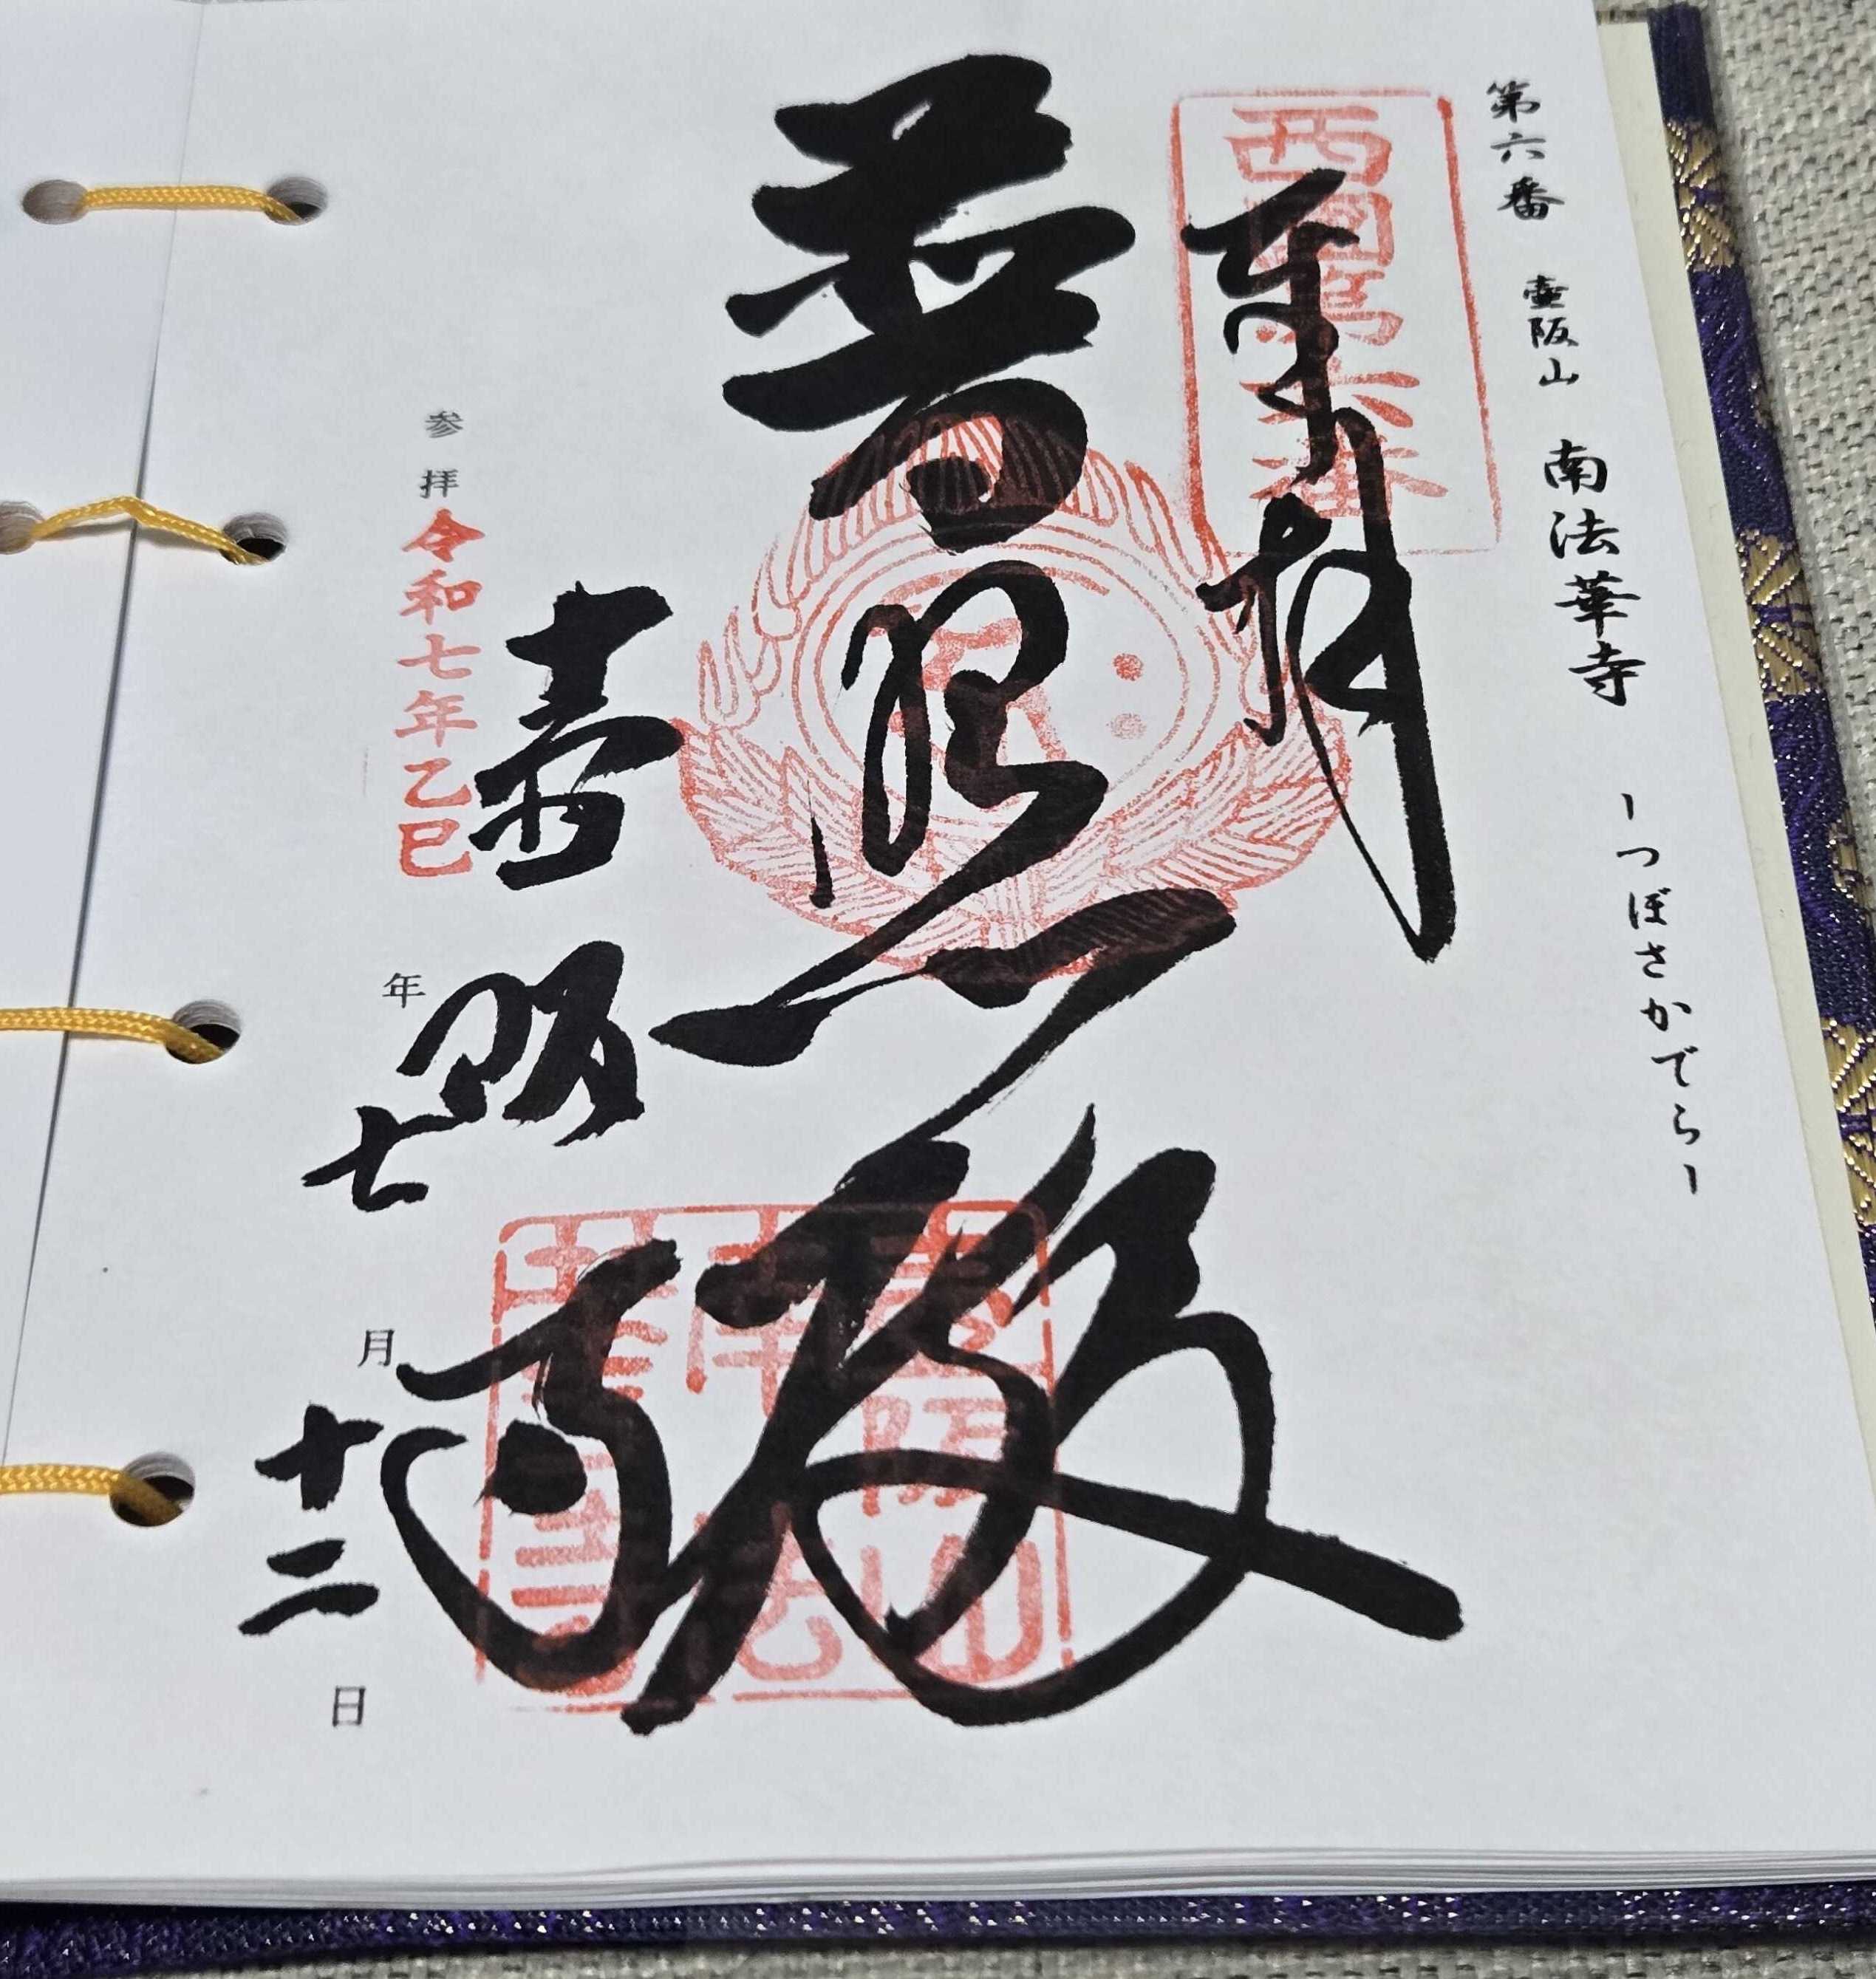 第六番 壺阪山 南法華寺 ーつぼさかでらー
西國第六番
奉拝
普照殿
壺阪寺
壺阪山
南法
華寺
参拝 令和七年乙巳 年 七 月 十二 日